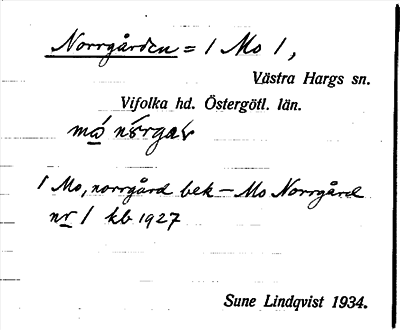 Norrgården = 1 Mo 1,
Västra Hargs sn.
Vifolka hd. Östergötl. län.
må
1 Mo, norrgård bek — Mo Norrgård
nr 1 kb 1927
Sune Lindqvist 1934.